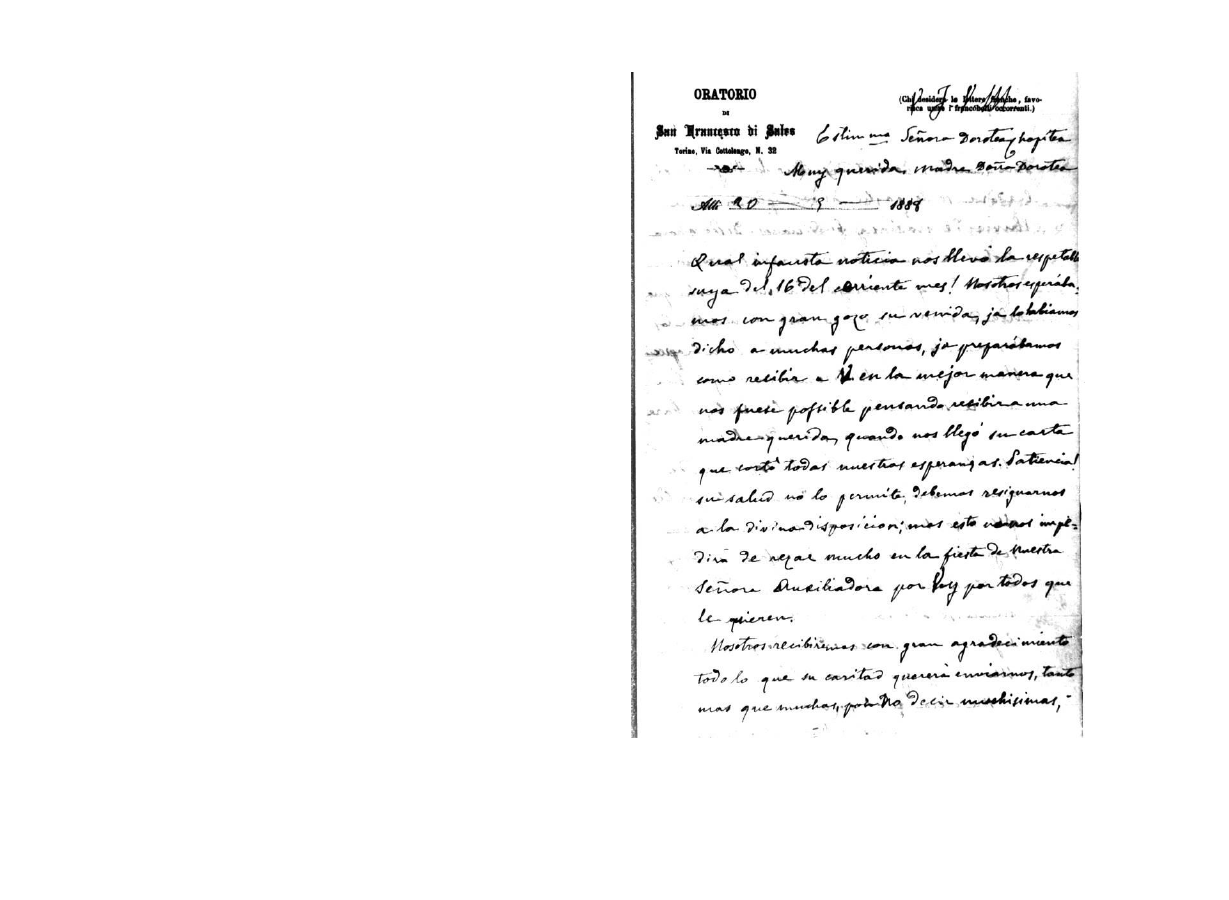 ORATORIO
DI
San Francesco di Sales
Torino, Via Cottolengo, N. 32
(Chi desidera le lettere franche, favo-
risca unire i francobolli occorrenti.)
V. J. M
Estim ma Señora Dorotea Chopitea
Muy querida Madre Doña Dorotea
Alli 20 — 5 — 1888
Qual infausta noticia nos llevó la respetable
suya del 16 del corriente mes! Nosotros esperába-
mos con gran gozo su venida, ja lo habiamos
dicho a muchas personas, ja preparábamos
como recibir a V. en la mejor manera que
nos fuese possible pensando recibir a una
madre querida, quando nos llegó su carta
que cortó todas nuestras esperanzas. Patiencia!
su salud no lo permite, debemos resignarnos
a la divina disposicion; mas esto no nos impe=
dirá de rezar mucho en la fiesta de Nuestra
Señora Auxiliadora por V. y por todos que
le quieren.
Nosotros recibiremos con gran agradecimiento
todo lo que su caritad quererà enviarnos, tanto
mas que muchas, podria decir muchisimas,